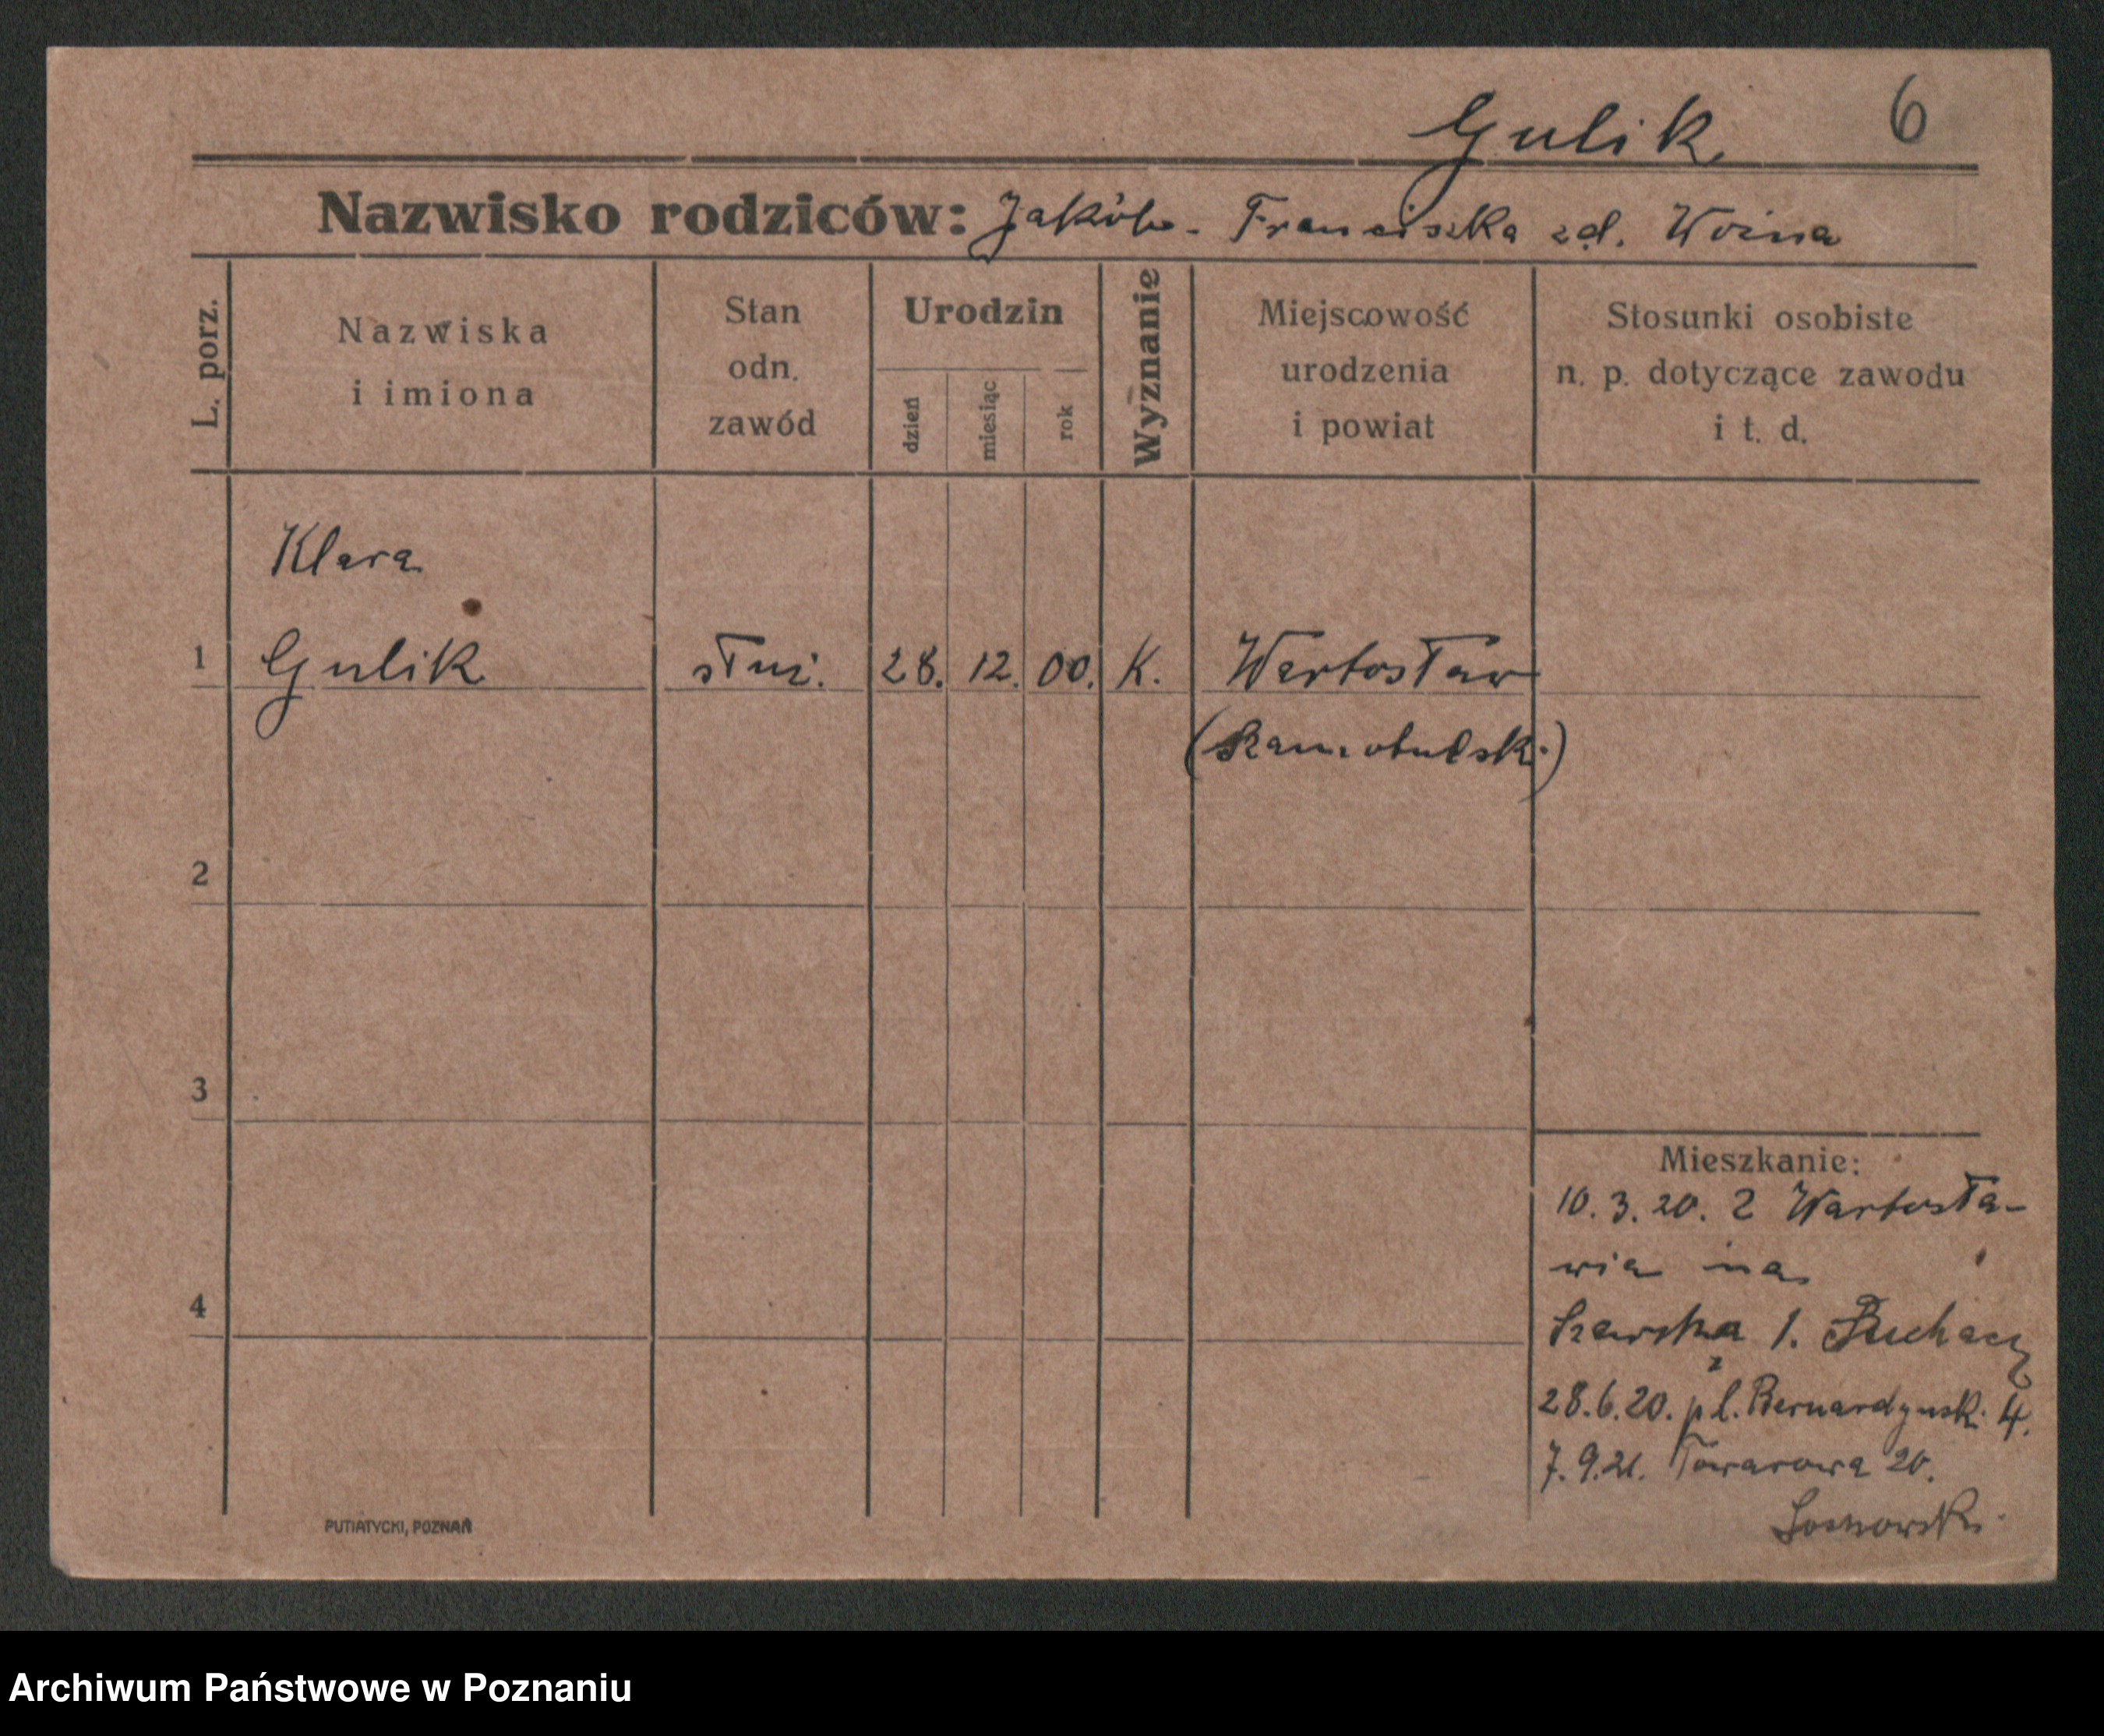 Gulik 6
Nazwisko rodziców: Jakób - Franciszka zd. Woina
L. porz.
Nazwiska
i imiona
Stan
odn.
zawód
Urodzin
dzień
miesiąc
rok
Wyznanie
Miejscowość
urodzenia
i powiat
Stosunki osobiste
n. p. dotyczące zawodu
i t. d.
Klara
1 Gulik służ. 28. 12. 00. K. Wartosław
(Szamotulsk.)
2
3
4
Mieszkanie:
10. 3. 20. z Wartosła-
wia na
1. Puchacz
28.6.20. pl. Bernardynsk. 4.
7.9.21. Towarowa 20.
PUTIATYCKI, POZNAŃ
Archiwum Państwowe w Poznaniu